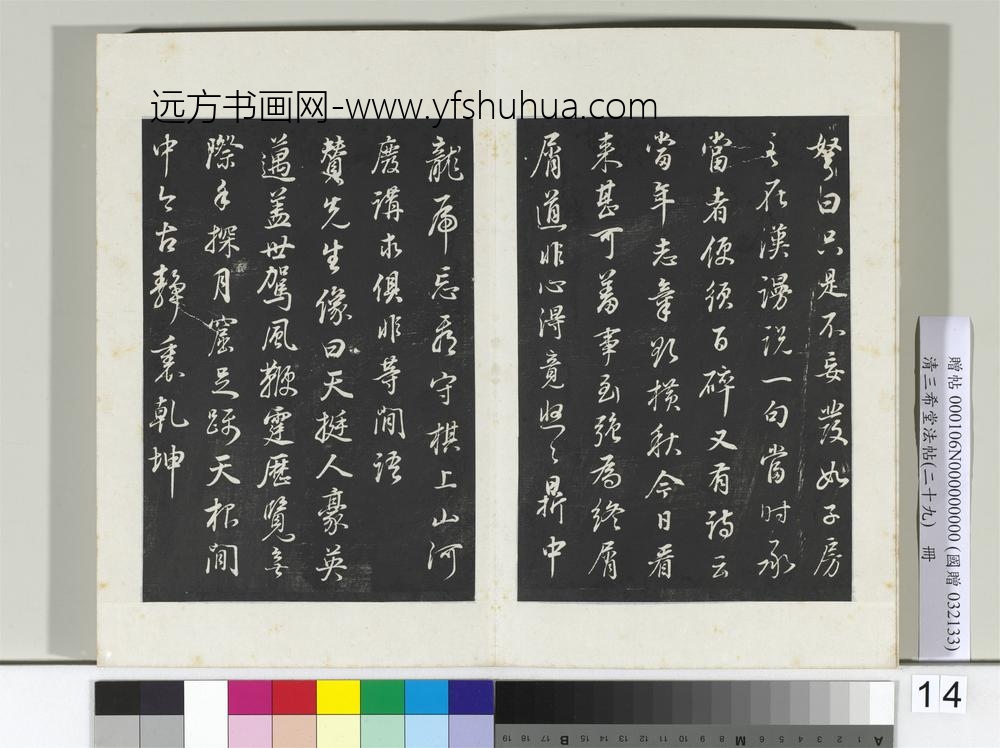 远方书画网-www.yfshuhua.com
弩曰只是不妄發如子房
之在漢謾説一句當時承
當者便須百碎又有詩云
當年志氣欲横秋今日看
来甚可羞事到強為終屑
屑道非心得竟悠〻鼎中
龍虎忘看守棋上山河
廢講求俱非等閒語
賛先生像曰天挺人豪英
邁蓋世駕風鞭霆歷覽無
際手探月窟足躡天根閒
中今古静裏乾坤
贈帖 000106N000000000 (國贈 032133)
清三希堂法帖(二十九) 冊
14